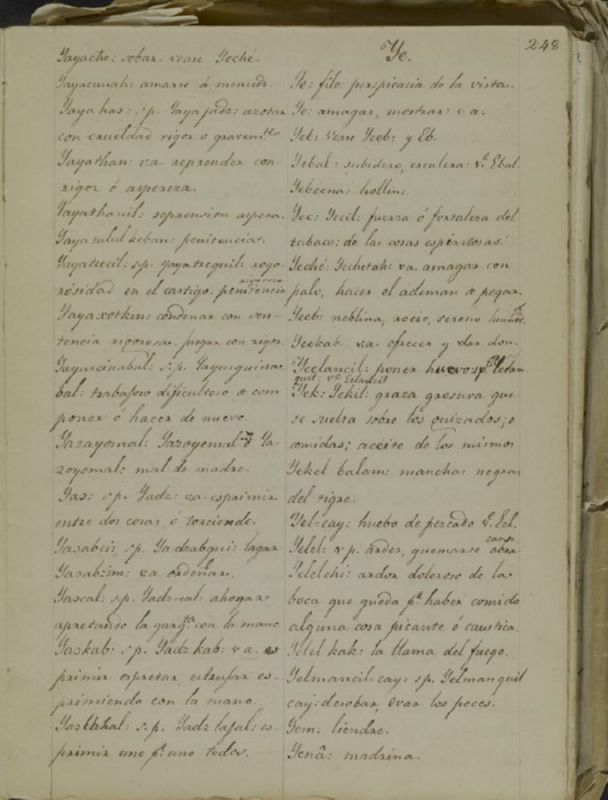 248
Yayache: sobar vease Yeché.
Yayacunah: amarse á menudo.
Yaya has: s.p. Yaya jadz: azotar
con crueldad rigor o gravemte
Yayathan: va. reprender con
rigor ó aspereza.
Yayathanil: reprension aspera.
Yaya keban: penitencias.
Yayatzecil: s.p. yayatzequil: rigo-
rosidad en el castigo. penitencia
rigorosa
Yayaxotkin: condenar con sen-
tencia rigorosa. juzgar con rigor.
Yayucinabal: s.p. Yayuquina-
bal: trabajoso dificultoso de com
poner ó hacer de nuevo.
Yazayomal: Yazoyemal ó Ya-
zoyemal: mal de madre.
Yas: s.p. Yadz: va. esprimir
entre dos cosas ó torciendo.
Yasabci: s.p. Yadzabqui: lagar
Yasabzim: va. ordeñar.
Yascal: s.p. Yadz-cal: ahogar
apretando la gargta con la mano
Yaskab: s.p. Yadz kab: v.a. es
primir apretar estrujar es-
primiendo con la mano.
s.p. Yadz lahal: es-
primir uno pr uno todos.
Ye.
Ye: filo; perspicacia de la vista.
Ye: amagar, mostrar: v.a.
Yeb: vean Yeeb: y Eb.
Yebal: subidero, escalera: ve Ebal.
Yebecna: hollin.
Yec: Yecil: fuerza ó fortaleza del
tabaco: de las cosas espirituosas.
Yeché: Yechetah: va. amagar con
palo, hacer el ademan de pegar.
Yeeb: neblina, rocio, sereno
Yeekab. va. ofrecer y dar don.
Yeelancil: poner huevos.
ve Eelancil
Yek: Yekil: graza grosura que
se suelta sobre los guizados; o
comidas; aceite de los mismos
Yekel balam: manchas negras
del tigre.
Yel-cay: huebo de pezcado ve. Eel.
Yelel: v.p. arder, quemarse
Yelelchi: ardor doloroso de la
boca que queda pr haber comido
alguna cosa picante ó caustica.
Yelel kak: la llama del fuego.
Yelmancil-cay: s.p. Yelmanquil
cay: desobar, ovar los peces.
Yem: liendre.
Yenâ: madrina.